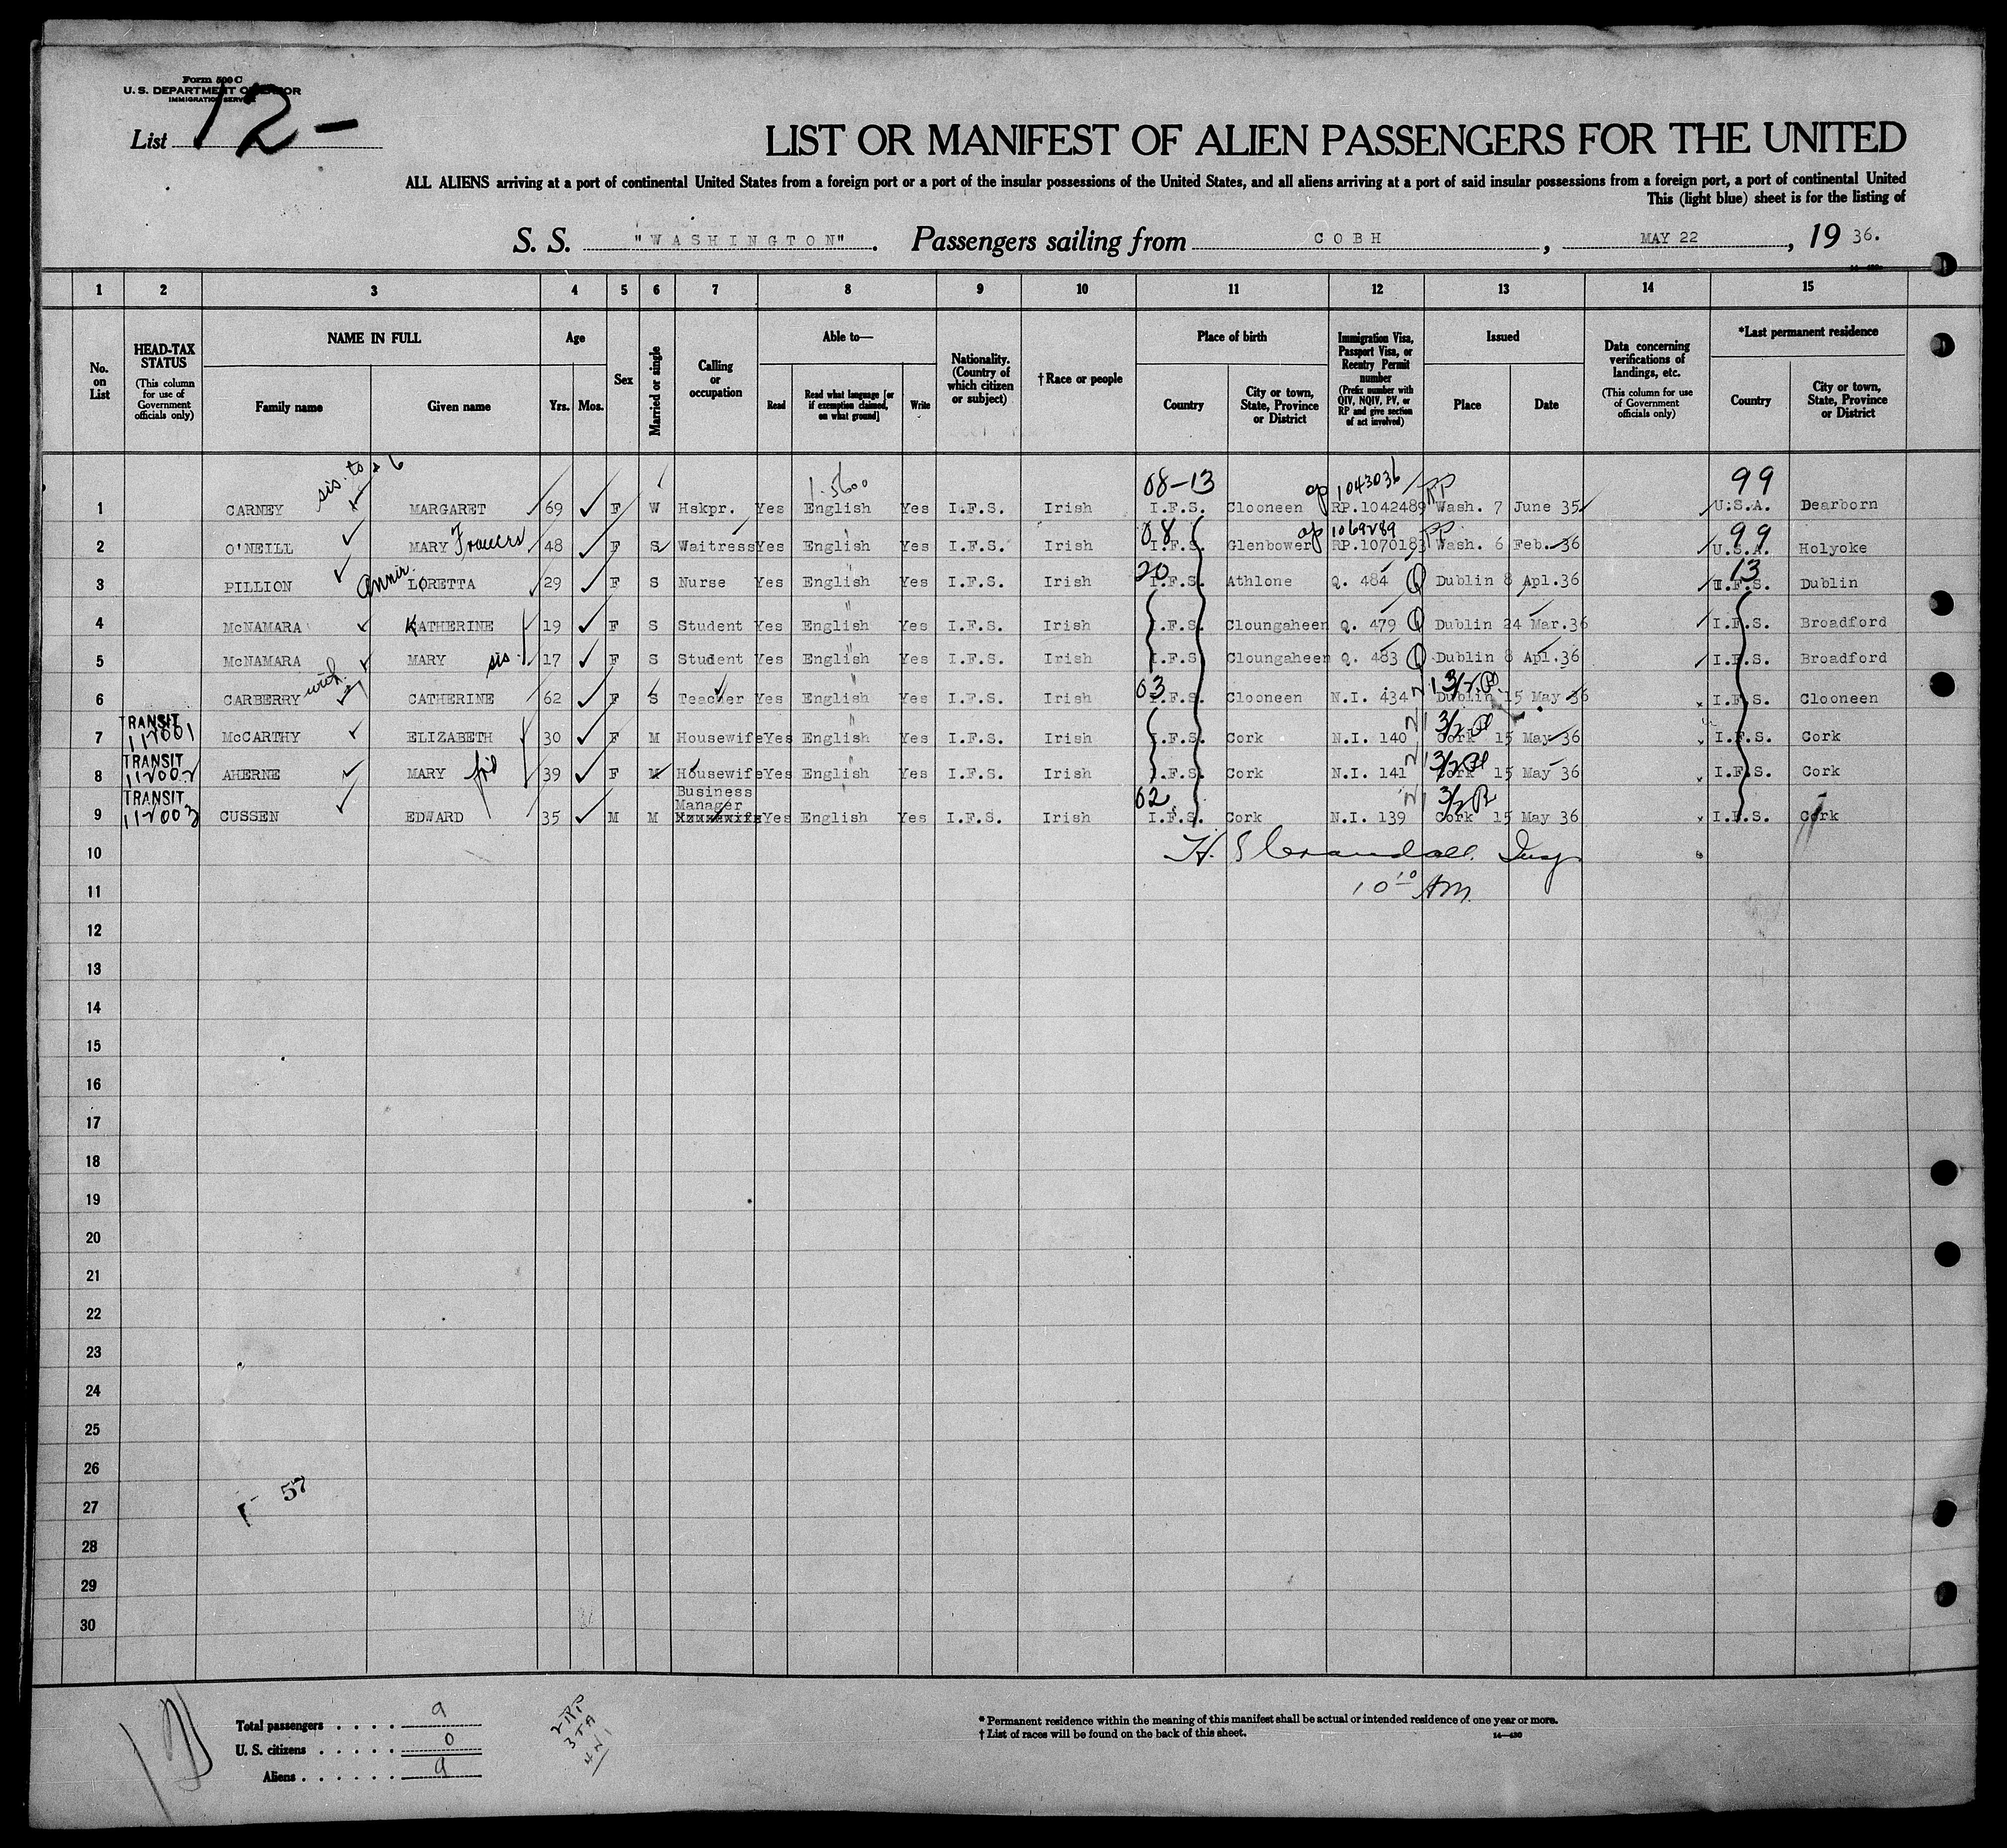 Form 500 C
U. S. DEPARTMENT OF LABOR
IMMIGRATION SERVICE
List 12-
LIST OR MANIFEST OF ALIEN PASSENGERS FOR THE UNITED
ALL ALIENS arriving at a port of continental United States from a foreign port or a port of the insular possessions of the United States, and all aliens arriving at a port of said insular possessions from a foreign port, a port of continental United
This (light blue) sheet is for the listing of
S. S. "WASHINGTON" . Passengers sailing from COBH , MAY 22 , 19 36.
1 2 3 4 5 6 7 8 9 10 11 12 13 14 15
No. on List
HEAD-TAX STATUS (This column for use of Government officials only)
NAME IN FULL Family name Given name
Age Yrs. Mos.
Sex
Married or single
Calling or occupation
Able to— Read Read what language [or if exemption claimed, on what ground] Write
Nationality. (Country of which citizen or subject)
† Race or people
Place of birth Country City or town, State, Province or District
Immigration Visa, Passport Visa, or Reentry Permit number (Prefix number with QIV, NQIV, PV, or RP and give section of act involved)
Issued Place Date
Data concerning verifications of landings, etc. (This column for use of Government officials only)
*Last permanent residence Country City or town, State, Province or District
sis. to # 6 08-13 1043036 RP 99
1 CARNEY MARGARET 69 F W Hskpr. Yes English Yes I.F.S. Irish I.F.S. Clooneen RP.1042489 Wash. 7 June 35 U.S.A. Dearborn
08 1069289 RP 99
2 O'NEILL MARY Frances 48 F S Waitress Yes English Yes I.F.S. Irish I.F.S. Glenbower RP.1070183 Wash. 6 Feb. 36 U.S.A. Holyoke
20 13
3 PILLION Annie LORETTA 29 F S Nurse Yes English Yes I.F.S. Irish I.F.S. Athlone Q. 484 Q Dublin 8 Apl.36 I.F.S. Dublin
4 McNAMARA KATHERINE 19 F S Student Yes English Yes I.F.S. Irish I.F.S. Cloungaheen Q. 479 Q Dublin 24 Mar.36 I.F.S. Broadford
5 McNAMARA MARY sis. 17 F S Student Yes English Yes I.F.S. Irish I.F.S. Cloungaheen Q. 483 Q Dublin 8 Apl.36 I.F.S. Broadford
03 3/2
6 CARBERRY CATHERINE 62 F S Teacher Yes English Yes I.F.S. Irish I.F.S. Clooneen N.I. 434 Dublin 15 May 36 I.F.S. Clooneen
TRANSIT 112001 3/2
7 McCARTHY ELIZABETH 30 F M Housewife Yes English Yes I.F.S. Irish I.F.S. Cork N.I. 140 Cork 15 May 36 I.F.S. Cork
TRANSIT 112002 3/2
8 AHERNE MARY 39 F M Housewife Yes English Yes I.F.S. Irish I.F.S. Cork N.I. 141 Cork 15 May 36 I.F.S. Cork
TRANSIT 112003 Business Manager 02 3/2
9 CUSSEN EDWARD 35 M M Housewife Yes English Yes I.F.S. Irish I.F.S. Cork N.I. 139 Cork 15 May 36 I.F.S. Cork
10 H. S Crandall. Insp
11 10 10 AM.
12
13
14
15
16
17
18
19
20
21
22
23
24
25
26
27 57
28
29
30
Total passengers . . . . . 9
U. S. citizens . . . . . 0
Aliens . . . . . . 9
2 RP
* Permanent residence within the meaning of this manifest shall be actual or intended residence of one year or more.
† List of races will be found on the back of this sheet.
14—430